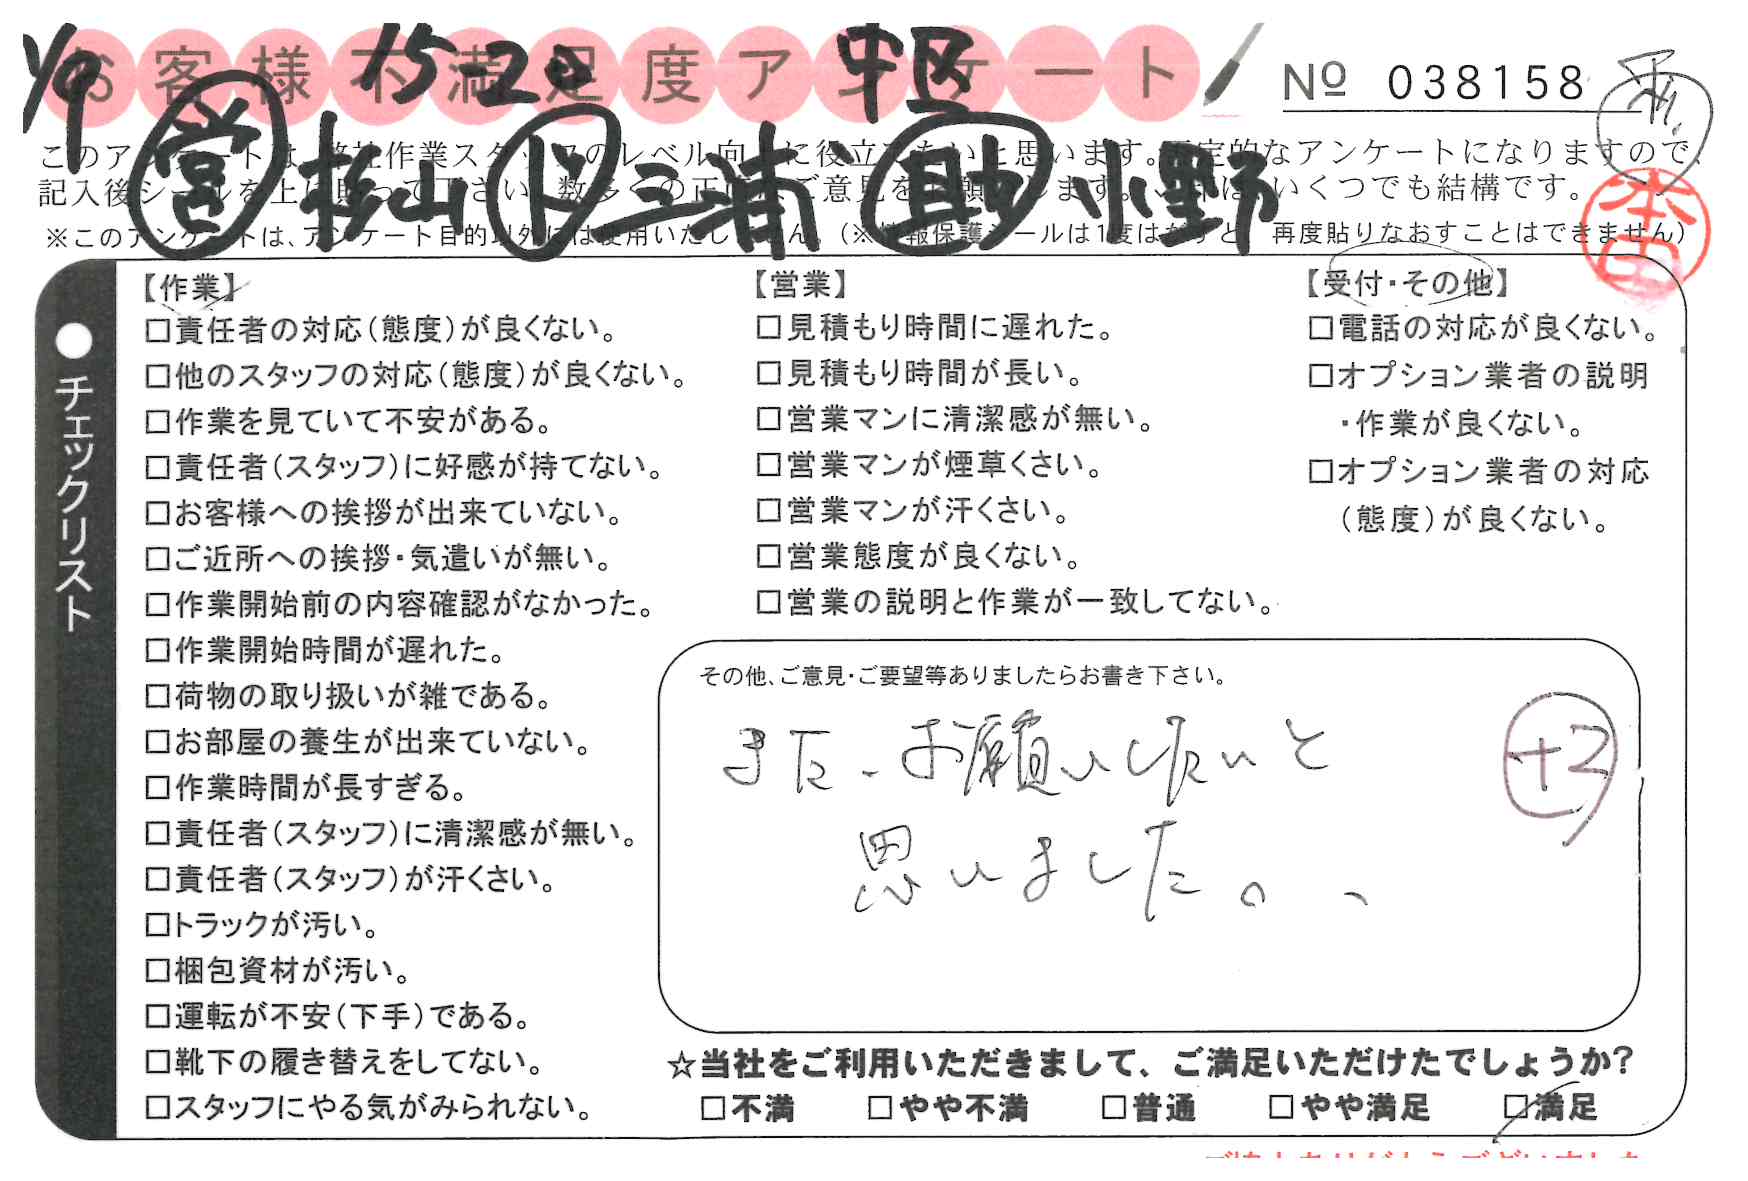 お客様不満足度アンケート
Nº 038158
1/9 15-20 中区
営 杉山 ド 三浦 助 小野
このアンケートは、弊社作業スタッフのレベル向上に役立てたいと思います。否定的なアンケートになりますので、
記入後シールを上に貼って下さい。数多くの正直なご意見をお願いします。いくつでも結構です。
※このアンケートは、アンケート目的以外には使用いたしません。(※情報保護シールは1度はがすと、再度貼りなおすことはできません)
本田
チェックリスト
【作業】
□責任者の対応(態度)が良くない。
□他のスタッフの対応(態度)が良くない。
□作業を見ていて不安がある。
□責任者(スタッフ)に好感が持てない。
□お客様への挨拶が出来ていない。
□ご近所への挨拶・気遣いが無い。
□作業開始前の内容確認がなかった。
□作業開始時間が遅れた。
□荷物の取り扱いが雑である。
□お部屋の養生が出来ていない。
□作業時間が長すぎる。
□責任者(スタッフ)に清潔感が無い。
□責任者(スタッフ)が汗くさい。
□トラックが汚い。
□梱包資材が汚い。
□運転が不安(下手)である。
□靴下の履き替えをしてない。
□スタッフにやる気がみられない。
【営業】
□見積もり時間に遅れた。
□見積もり時間が長い。
□営業マンに清潔感が無い。
□営業マンが煙草くさい。
□営業マンが汗くさい。
□営業態度が良くない。
□営業の説明と作業が一致してない。
【受付・その他】
□電話の対応が良くない。
□オプション業者の説明
・作業が良くない。
□オプション業者の対応
(態度)が良くない。
その他、ご意見・ご要望等ありましたらお書き下さい。
また、お願いしたいと
思いました。
+2
☆当社をご利用いただきまして、ご満足いただけたでしょうか?
□不満 □やや不満 □普通 □やや満足 □満足